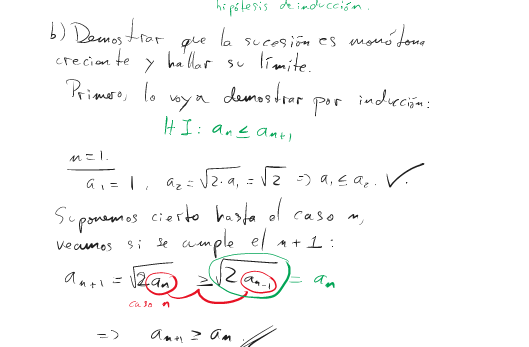 hipótesis de inducción.
b) Demostrar que la sucesión es monótona
creciente y hallar su límite.
Primero, lo voy a demostrar por inducción:
HI: aₙ ≤ aₙ₊₁
n=1.
a₁ = 1, a₂ = √2·a₁ = √2 => a₁ ≤ a₂. ✓.
Suponemos cierto hasta el caso n,
veamos si se cumple el n+1:
aₙ₊₁ = √2aₙ ≥ √2aₙ₋₁ = aₙ
caso n
=> aₙ₊₁ ≥ aₙ.